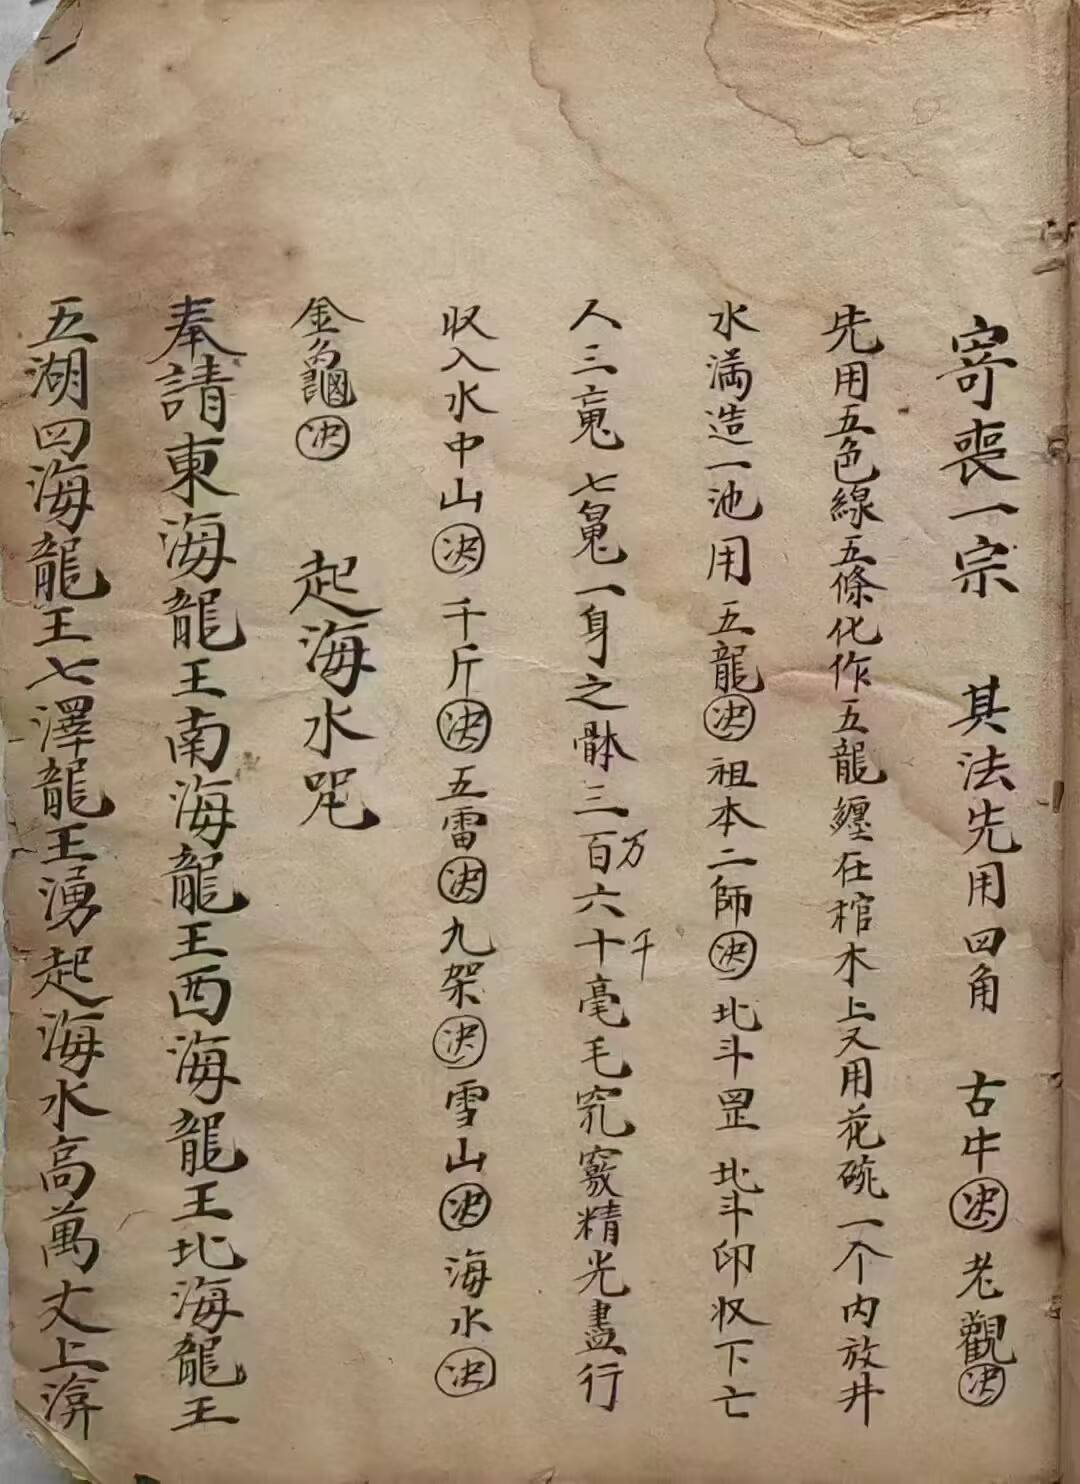 寄喪一宗　其法先用四角　古牛決老觀決
先用五色線五條化作五龍纏在棺木上又用花碗一个内放井
水満造一池用五龍決祖本二師決北斗罡北斗印収下亡
人三䰟七䰟一身之骵三百万六十千毫毛窍竅精光盡行
収入水中山決千斤決五雷決九架決雪山決海水決
金決　起海水咒
奉請東海龍王南海龍王西海龍王北海龍王
五湖四海龍王七澤龍王湧起海水高萬丈上